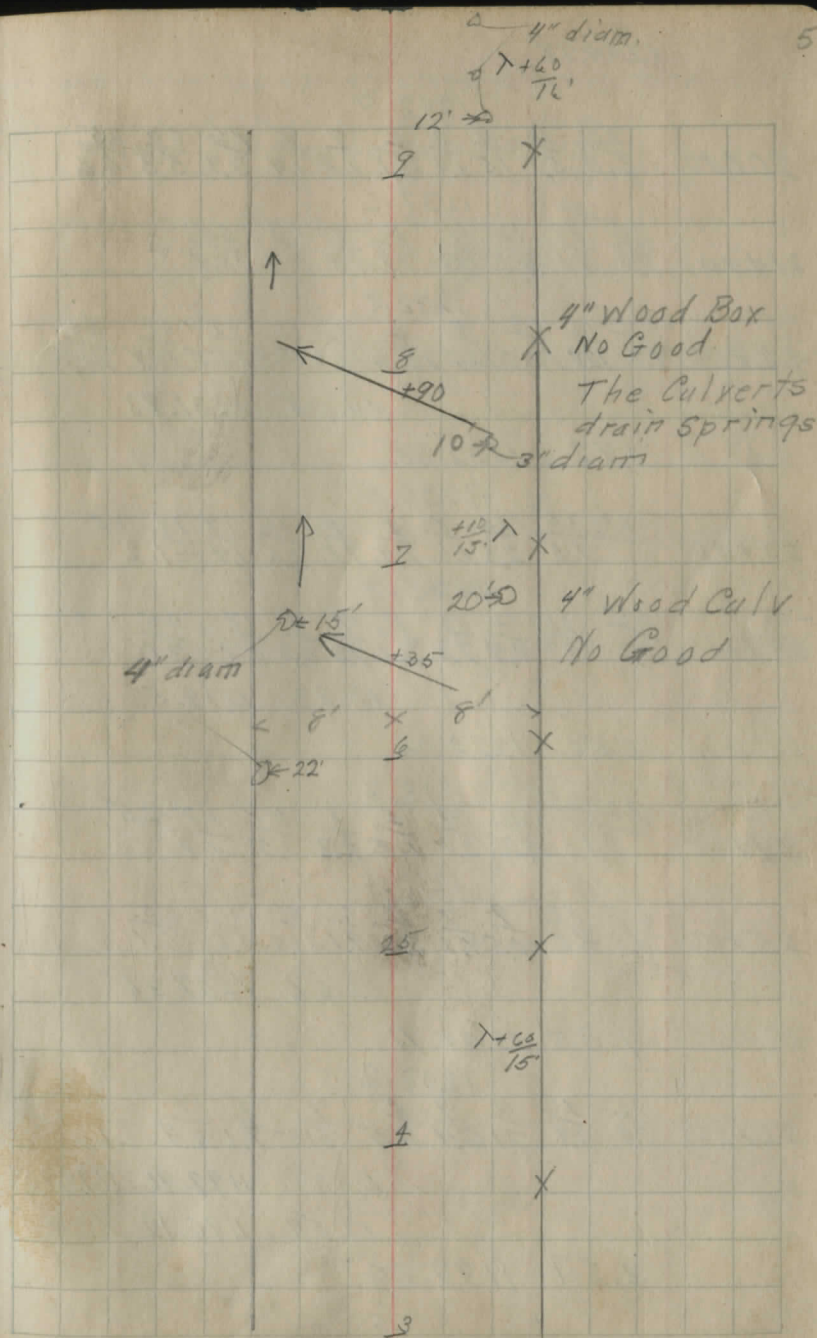 5
4" diam.
λ +60
16'
12'
9
4" Wood Box
No Good
8
+90
The Culverts
drain Springs
10'
3" diam
+10
15'
λ
7
20'
4" Wood Culv
15'
No Good
4" diam
+35
8'
8'
6
22'
25
λ +60
15
4
3